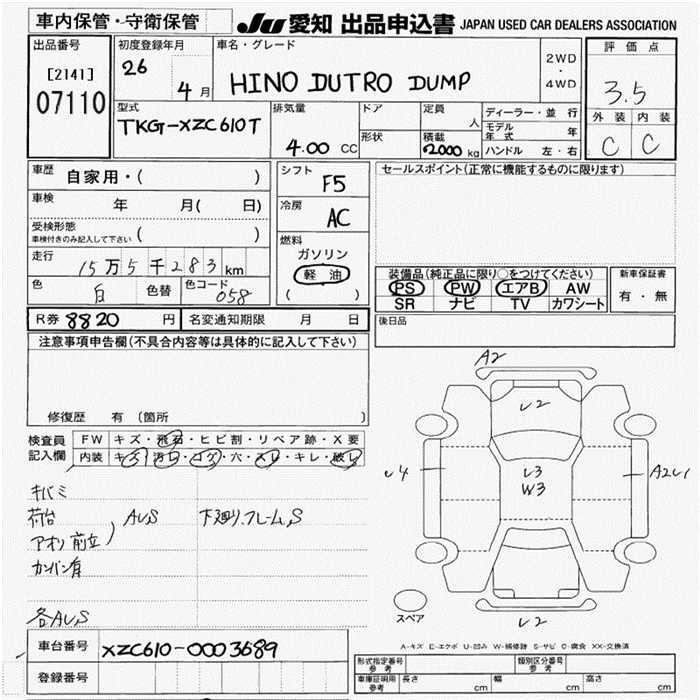 車内保管・守衛保管
JU 愛知 出品申込書 JAPAN USED CAR DEALERS ASSOCIATION
出品番号
[2141]
07110
初度登録年月
26
4 月
車名・グレード
HINO DUTRO DUMP
2WD
・
4WD
評価点
3.5
外装 内装
C C
型式
TKG-XZC610T
排気量
4.00 CC
ドア
形状
定員
人
積載
2000 kg
ディーラー・並行
モデル年式 年
ハンドル 左・右
車歴 自家用・( )
車検 年 月( 日)
受検形態
車検付きのみ記入して下さい ( )
走行 15万5千283km
色 白 色替 色コード 058
シフト
F5
冷房
AC
燃料
ガソリン
軽油
( )
セールスポイント(正常に機能するものに限ります)
装備品(純正品に限り○をつけてください)
PS PW エアB AW
SR ナビ TV カワシート
新車保証書
有・無
R券 8820 円 名変通知期限 月 日
後日品
注意事項申告欄(不具合内容等は具体的に記入して下さい)
修復歴 有 (箇所 )
検査員
記入欄
FW キズ・飛石・ヒビ割・リペア跡・X要
内装 キズ・汚レ・コゲ・穴・スレ・キレ・破レ
キバミ
荷台
アオリ 前立
AUS
下廻リ、フレームS
カンバン有
各AUS
A2
U2
U4
U3
W3
A2U1
U2
スペア
A-キズ E-エクボ U-凹み W-補修跡 S-サビ C-腐食 XX-交換済
車台番号 XZC610-0003689
登録番号
形式指定番号
参考
類別区分番号
参考
車庫証明用
参考
長さ cm 幅 cm 高さ cm